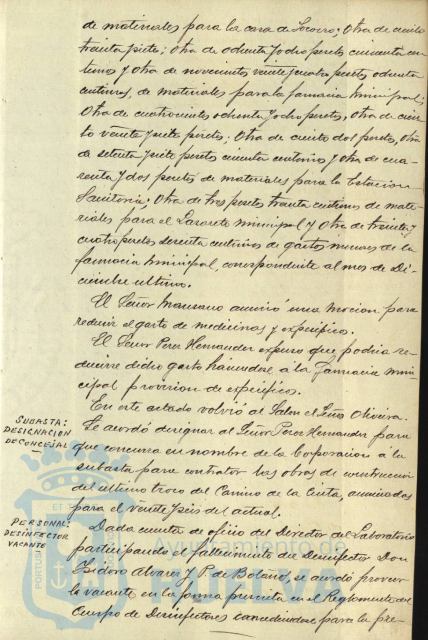 de materiales para la casa de Socorro; Otra de ciento
treinta y siete; Otra de ochenta y ocho pesetas cincuenta cen-
timos y otra de novecientos veinte y cuatro pesetas ochenta
centimos, de materiales para la farmacia Municipal;
Otra de cuatrocientos ochenta y ocho pesetas, otra de cien-
to veinte y siete pesetas; Otra de ciento dos pesetas, otra
de setenta y siete pesetas cincuenta centimos y otra de cua-
renta y dos pesetas de materiales para la Estacion
Sanitaria; Otra de tres pesetas treinta centimos de mate-
riales para el Lazareto Municipal y Otra de treinta y
cuatro pesetas sesenta centimos de gastos menores de la
farmacia Municipal, correspondiente al mes de Di-
ciembre ultimo.
El Señor Manzano anunció una mocion para
reducir el gasto de medicinas y especificos.
El Señor Perez Hernandez expuso que podria re-
ducirse dicho gasto haciendose á la Farmacia Muni-
cipal provision de especificos.
En este estado volvió al Salon el Señor Oliveira.
SUBASTA:
DESIGNACION
DE CONCEJAL
Se acordó designar al Señor Perez Hernandez para
que concurra en nombre de la Corporacion a la
subasta para contratar las obras de construccion
del ultimo trozo del Camino de la Cinta, anunciadas
para el veinte y seis del actual.
PERSONAL:
DESINFECTOR
VACANTE
Dada cuenta de oficio del Director del Laboratorio
participando el fallecimiento del Desinfector Don
Isidoro Alvarez y P. de Bolaño, se acordó proveer
la vacante en la forma prescrita en el Reglamento del
Cuerpo de Desinfectores concediendose para la pre-
Ayuntamiento